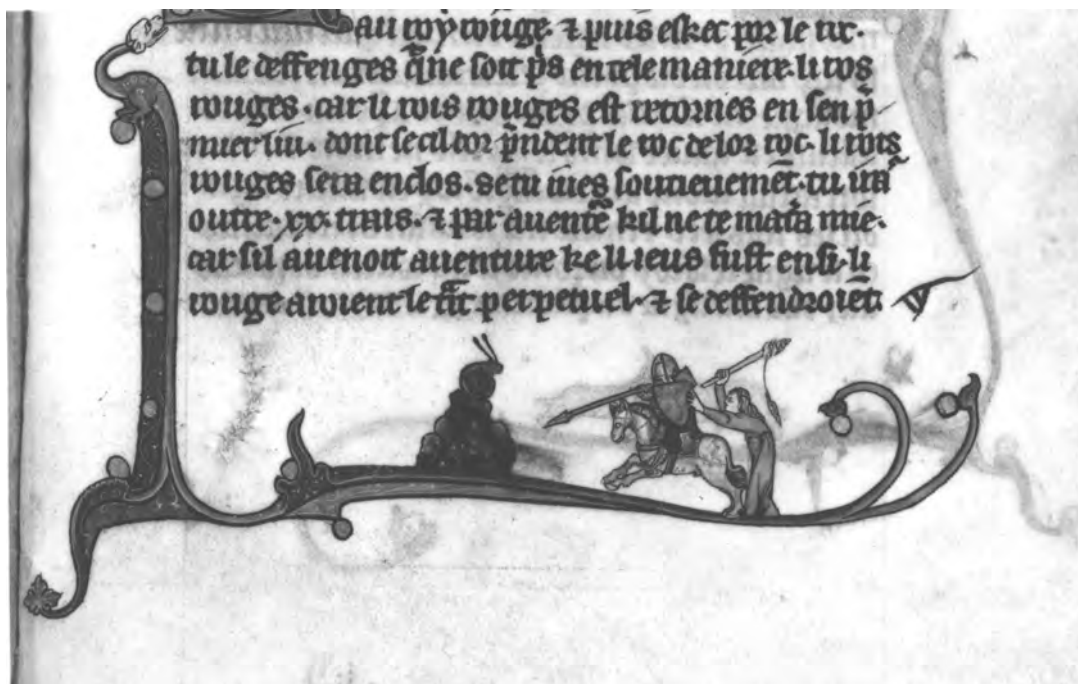 au roy rouge. ⁊ puis eskec por le roc.
tu le deffenges q̃ne soit p̃s en tele maniere. li rois
rouges. car li rois rouges est retornies en sen p̃
mier liu. dont se cil dor p̃ndent le roc de lor roc. li rois
rouges sera enclos. se tu iues soutieuemẽt. tu iras
outre .xx. trais. ⁊ par auentẽ kil ne te matãa mie.
car sil auenoit auenture ke li ieus fust ensi. li
rouge auoient le trait perpetuel. ⁊ se deffendroiẽt.